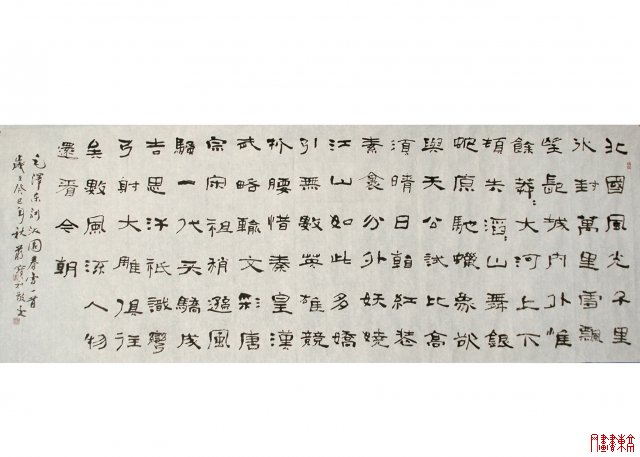 北國風光千里
冰封萬里雪飄
望長城內外惟
餘莽々大河上下
頓失滔々山舞銀
蛇原馳蠟象欲
與天公試比高
須晴日看紅裝
素裹分外妖嬈
江山如此多嬌
引無數英雄競
折腰惜秦皇漢
武略輸文彩唐
宗宋祖稍遜風
騷一代天驕成
吉思汗祇識彎
弓射大雕俱往
矣數風流人物
還看今朝
毛澤東詞沁園春雪一首
歲在癸巳年秋